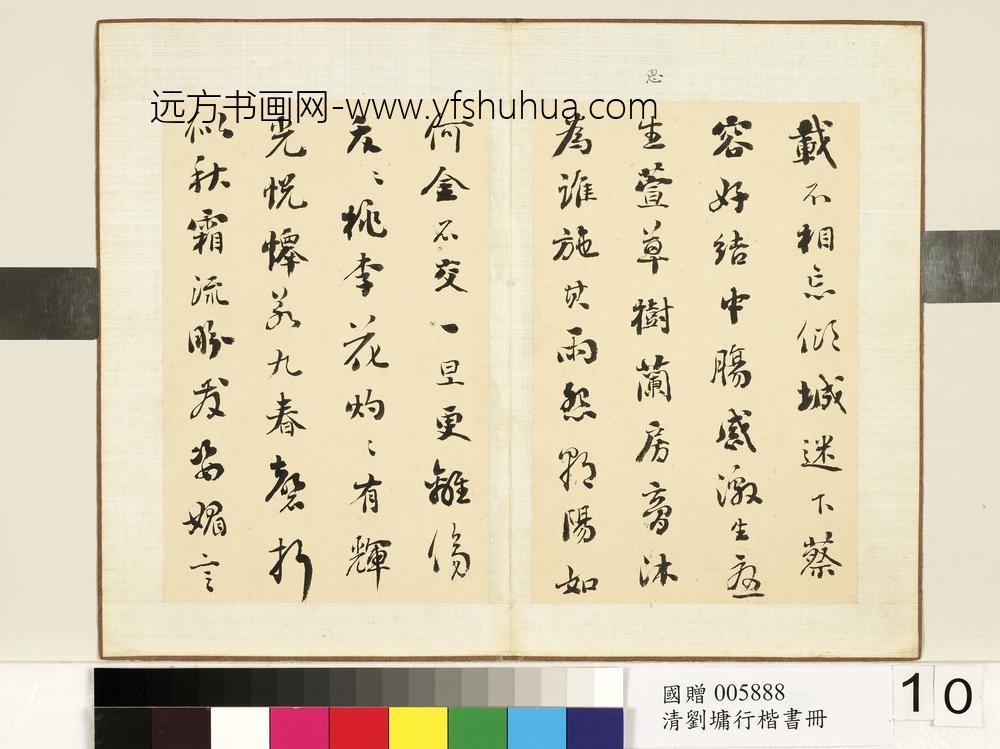 远方书画网-www.yfshuhua.com
思
載不相忘傾城迷下蔡
容好結中腸感激生憂
生萱草樹蘭房膏沐
為誰施其雨怨朝陽如
何金石交一旦更離傷
夭〻桃李花灼〻有輝
光悅懌若九春磬折
似秋霜流盼發姿媚言
國贈 005888
清劉墉行楷書冊
10